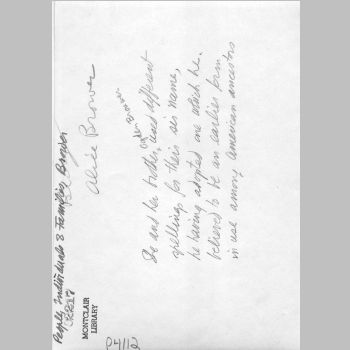 People, Individuals & Families, Brower
Alice Brower
She and her brother, used different
Ogden Brower
spellings for their sir name,
he having adopted one which he
believed to be an earlier form
in use among American ancestors
MONTCLAIR
LIBRARY
P4112